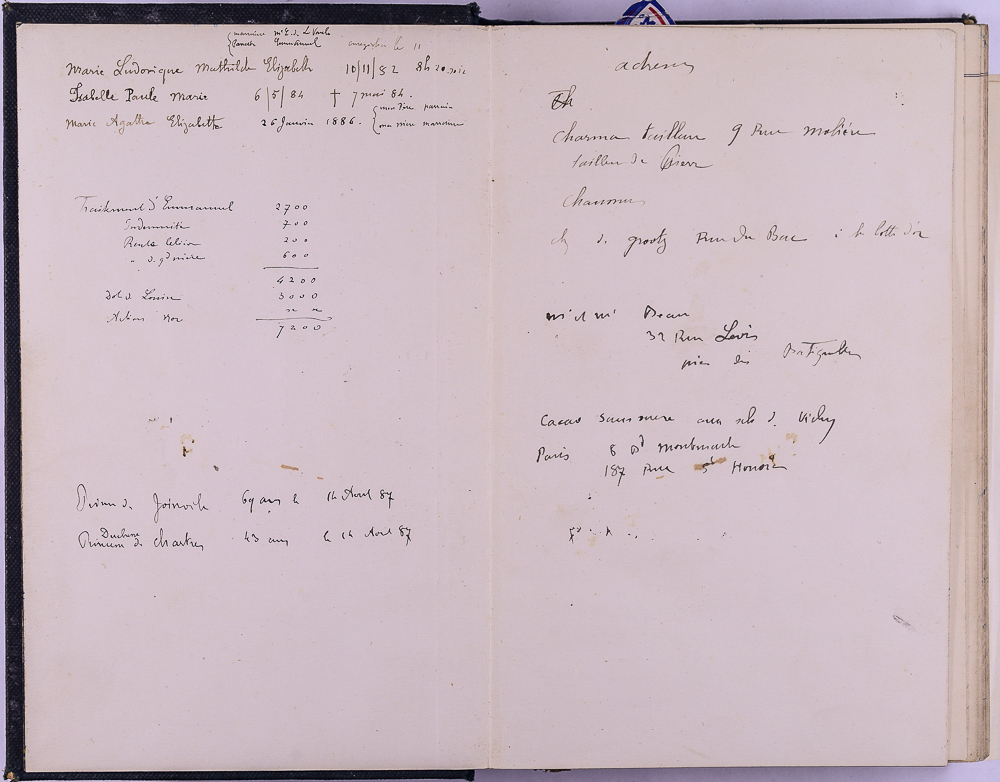 marraine Mme E. de
parrain Emmanuel
enregistrée le 11
Marie Ludovique Mathilde Elizabeth 10/11/82 8h 20 soir
Isabelle Paule Marie 6/5/84 † 7 mai 84.
Marie Agathe Elizabeth 26 Janvier 1886. mon père parrain
ma mère marraine
Traitement d'Emmanuel 2700
Indemnité 700
Rente 200
" de gd mère 600
4200
Dot de Louise 3000
Actions
7200
de Joinville 69 ans le 14 Avril 87
Duchesse
de Chartres 43 ans le 14 Avril 87
adresses
Th
Charma tailleur 9 Rue Molière
tailleur de Pierre
Chaussures
de grootz Rue Du Bac à la botte d'or
Mr et Me Beau
32 Rue Levis
près des Batignolles
Cacao sans sucre aux sels de Vichy
Paris 8 Bd Montmartre
187 Rue St Honoré